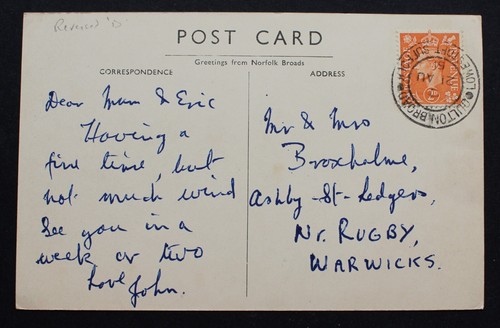 Reversed 'D
POST CARD
Greetings from Norfolk Broads
CORRESPONDENCE
ADDRESS
OULTON BROAD
LOWESTOFT SUFFOLK
AU
Dear Mum & Eric
Having a
fine time, but
not much wind
See you in a
week or two
Love
John.
Mr & Mrs
Broxholme,
Ashby-St-Ledgers,
Nr. RUGBY,
WARWICKS.